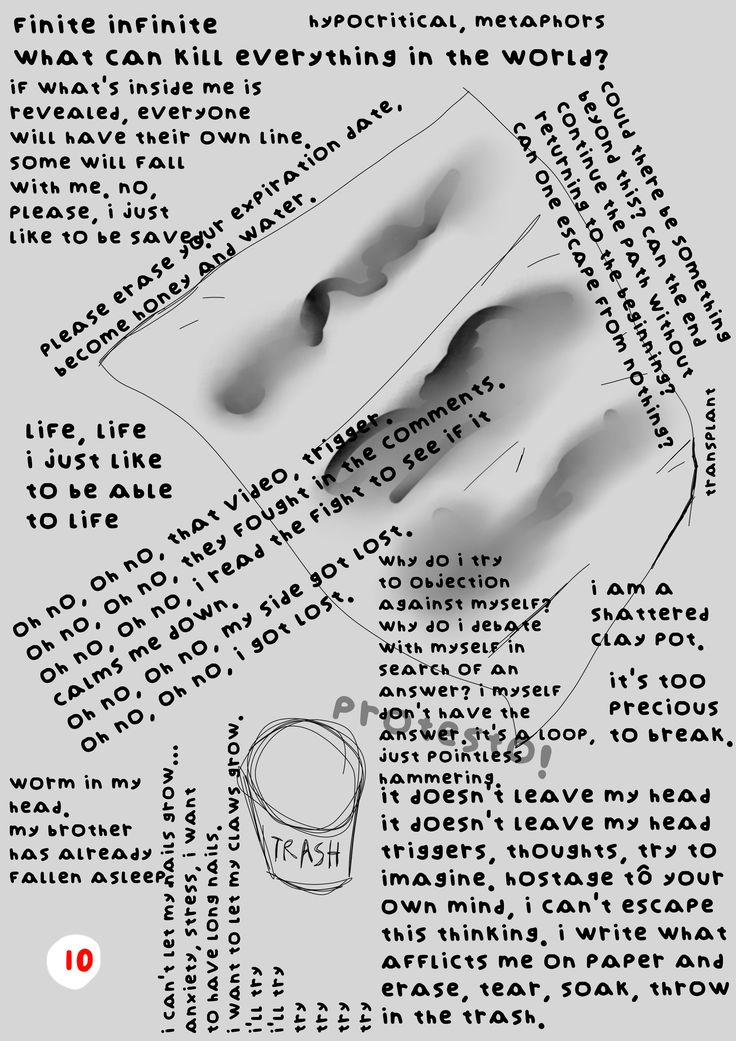 Finite infinite
hypocritical, metaphors
What can kill everything in the world?
if what's inside me is
revealed, everyone
will have their own line.
Some will fall
with me. No,
Please, i just
like to be save.
Please erase your expiration date,
become honey and water.
Could there be something
beyond this? Can the end
continue the path without
returning to the beginning?
Can one escape from nothing?
transplant
Life, Life
i just like
to be able
to life
Oh no, Oh no, that video, trigger.
Oh no, Oh no, they fought in the comments.
Oh no, Oh no, i read the fight to see if it
calms me down.
Oh no, Oh no, my side got lost.
Oh no, Oh no, i got lost.
Why do i try
to objection
against myself?
Why do i debate
with myself in
search of an
answer? i myself
don't have the
answer. it's a loop,
just pointless
hammering.
i am a
shattered
clay pot.
it's too
precious
to break.
Protesto!
Worm in my
head.
my brother
has already
fallen asleep
i can't let my nails grow...
anxiety, stress, i want
to have long nails.
i want to let my claws grow.
i'll try
i'll try
try
try
try
try
TRASH
it doesn't leave my head
it doesn't leave my head
triggers, thoughts, try to
imagine. hostage tô your
own mind, i can't escape
this thinking. i write what
afflicts me on paper and
erase, tear, soak, throw
in the trash.
10